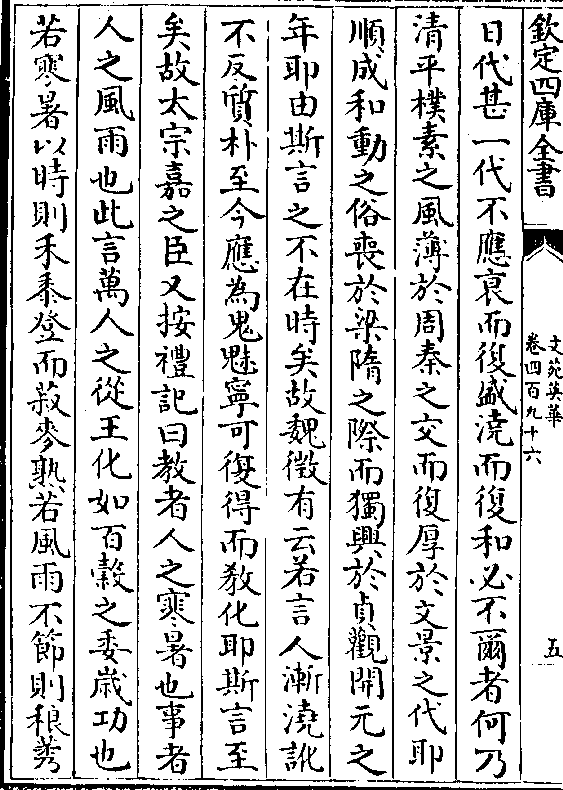 欽定四庫全書
文苑英華
卷四百九十六
五
日代甚一代不應衰而復盛澆而復和必不爾者何乃
清平樸素之風薄於周秦之交而復厚於文景之代耶
順成和動之俗喪於梁隋之際而獨興於貞觀開元之
年耶由斯言之不在時矣故魏徴有云若言人漸澆訛
不反質朴至今應為鬼魅寧可復得而教化耶斯言至
矣故太宗嘉之臣又按禮記曰教者人之寒暑也事者
人之風雨也此言萬人之從王化如百穀之委歲功也
若寒暑以時則禾黍登而菽麥熟若風雨不節則稂莠